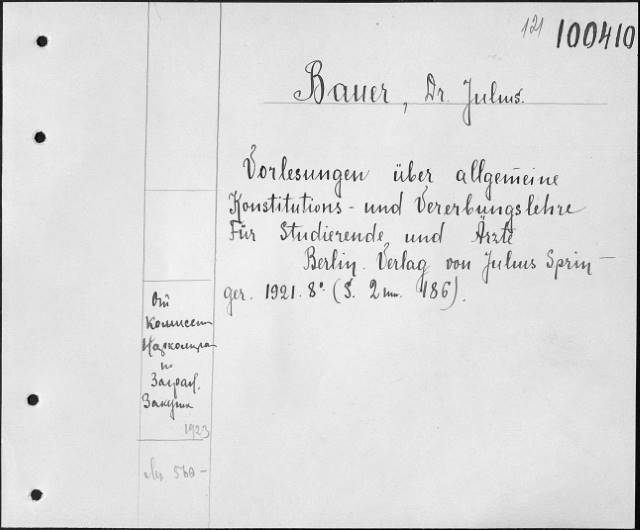 121 100410
Bauer, Dr. Julius.
Vorlesungen über allgemeine
Konstitutions- und Vererbungslehre
Für Studierende und Ärzte
Berlin. Verlag von Julius Sprin-
ger. 1921. 8°. (S. 2 nn. 186).
От
Комиссии
Наркомпра
по
Заграб.
Закупк
1923
560-